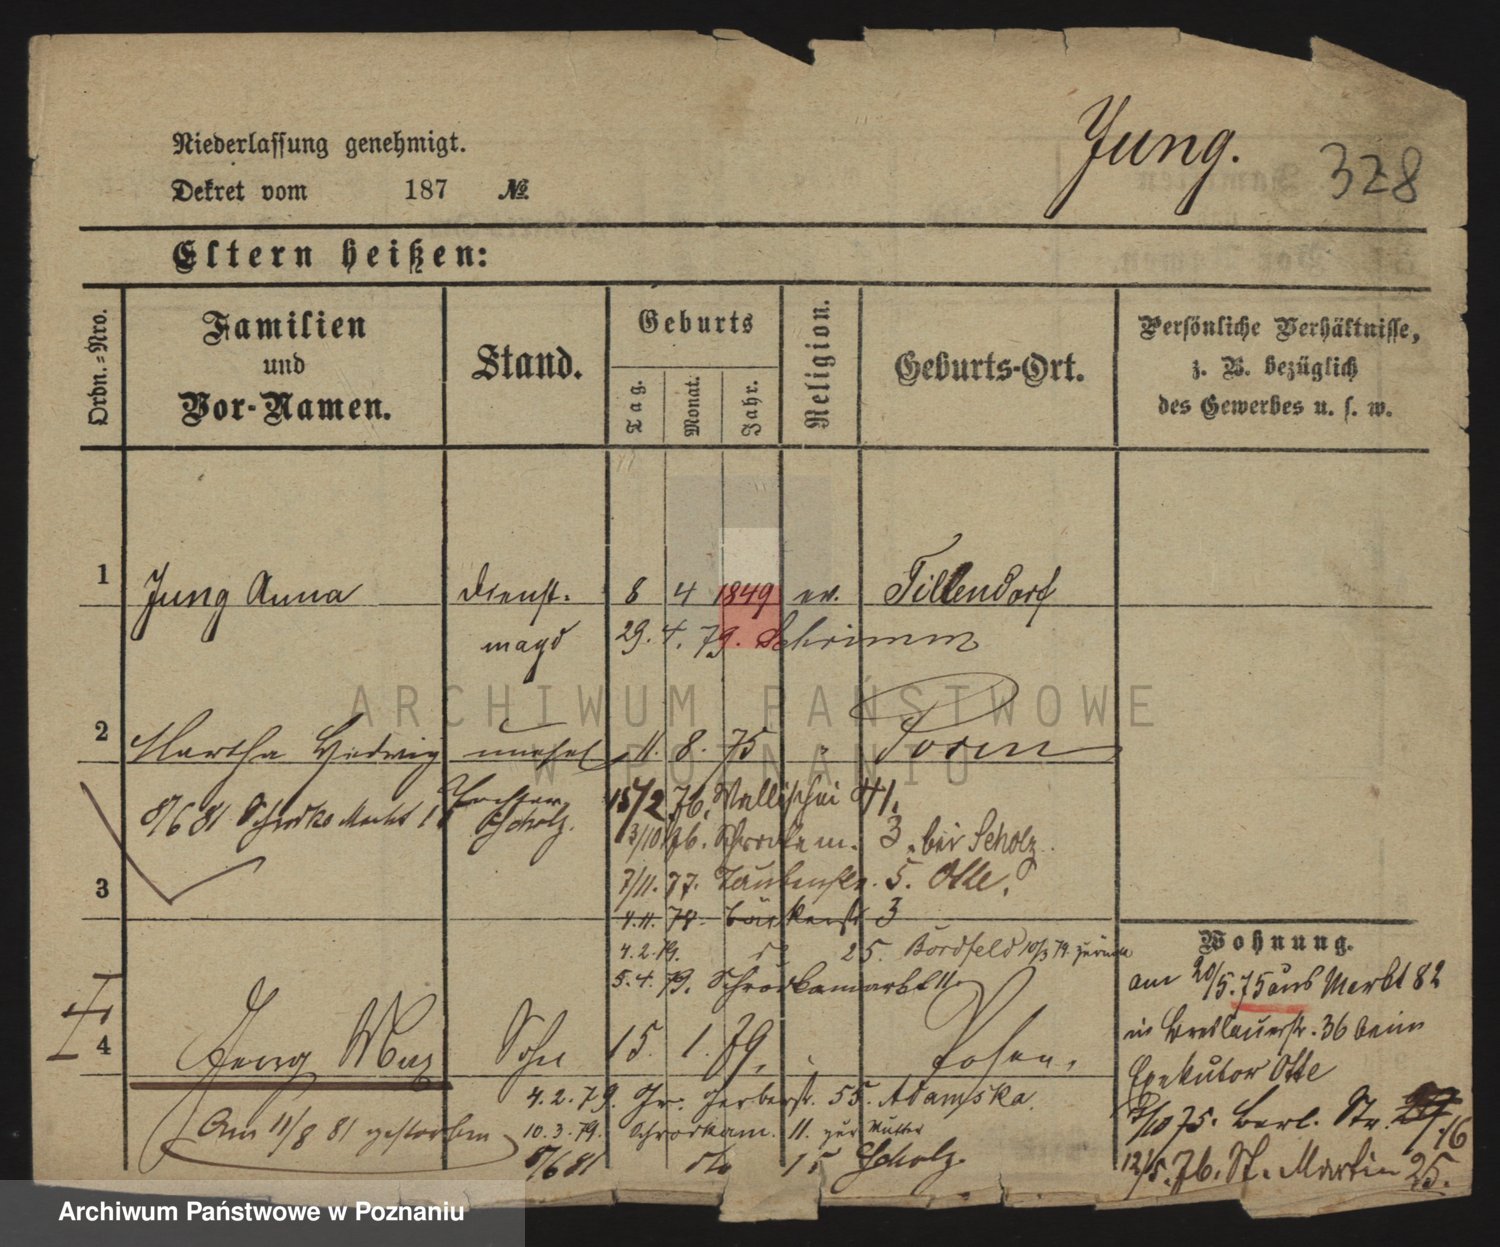 Niederlassung genehmigt.
Dekret vom 187 №
Jung.
328
Eltern heißen:
Ordn.-Nro.
Familien
und
Vor-Namen.
Stand.
Geburts
Tag.
Monat.
Jahr.
Religion.
Geburts-Ort.
Persönliche Verhältnisse,
z. B. bezüglich
des Gewerbes u. s. w.
1 Jung Anna Dienst- 8 4 1849 ev. Tillendorf
magd 29. 4. 79. Schrimm
2 Martha Hedwig unehel 11. 8. 75 " Posen
Tochter 15/2 76. Wallischei 41.
8/6 81 Schrodka Markt Scholz.
3/10 76. Schrodkam. 3. bei Scholz.
3 7/11. 77. Taubenstr. 5. Otte.
4.11. 78. Bäckerstr 3
4.2.79. 25. Bordfeld 10/3 79. zurück
5.4.79. Schrodkamarkt 11.
4 Georg Max Sohn 15. 1. 79. Posen.
4.2.79. Gr. Gerberst. 55. Adamska.
Am 11/8 81 gestorben 10.3.79. Schrodkam. 11. zur Mutter
8/6 81 15 Scholz.
Wohnung.
am 20/5. 75 aus Markt 82
in Breslauerstr. 36 beim
Exekutor Otte
/10 75. Berl. Str. 16
12/5. 76. St. Martin 25.
ARCHIWUM PAŃSTWOWE
W POZNANIU
Archiwum Państwowe w Poznaniu